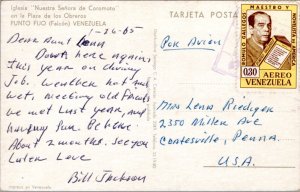 Iglesia "Nuestra Señora de Coromoto"
en la Plaza de los Obreros
PUNTO FIJO (Falcón) VENEZUELA
TARJETA POSTA
1-26-65
Dear Aunt Lena
Down here again
this year on diving
Job. Weather hot and
wet, meeting old friends
we met last year, and
having fun. Be here
about 2 months. See you
Later Love
Bill Jackson
Por Avion
Miss Lena Riedigen
2350 Millen Ave
Coatesville, Penna.
U.S.A.
ROMULO GALLEGOS
MAESTRO Y
NOVELISTA
0,30
AEREO
VENEZUELA
Impreso en Venezuela